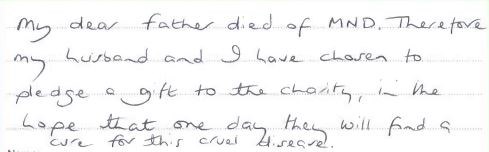 My dear father died of MND. Therefore
my husband and I have chosen to
pledge a gift to the charity, in the
hope that one day they will find a
cure for this cruel disease.